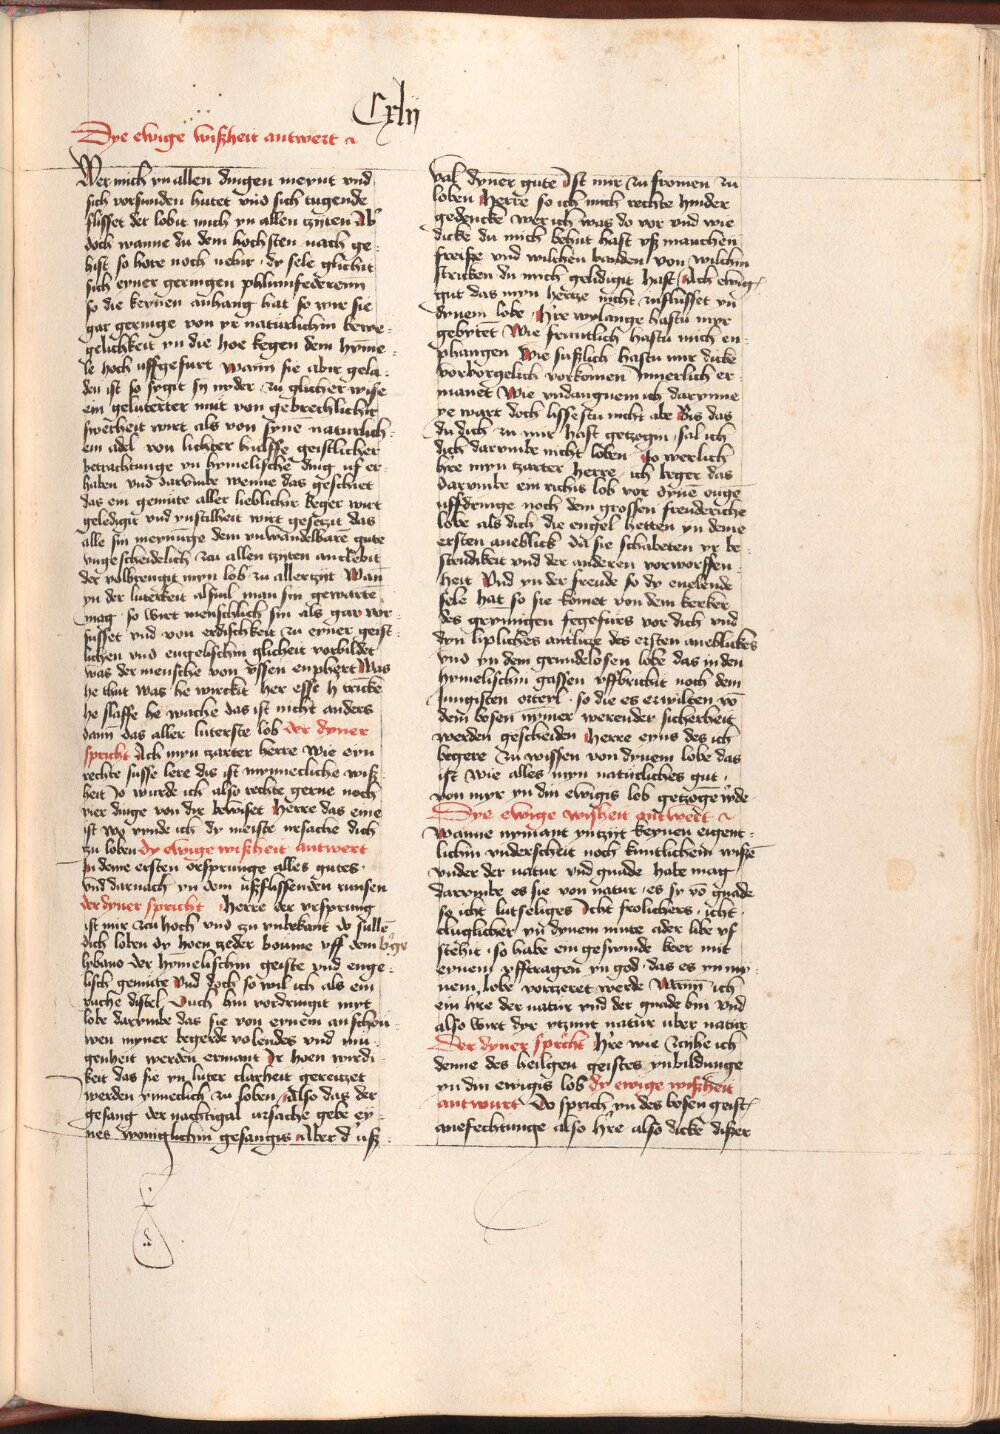 Cxlij
Dye ewige wißheit antwert
Wer mich yn allen dingen meynt vnd
sich vorsunden hutet vnd sich tugende
flisset der lobit mich yn allen zyten Ab'
doch wanne du dem hochsten nach ge-
hist so hore noch nehir dy sele glichit
sich eyner geringen phlumfederenn
so die keynen anhang hat so wir sie
gar geringe von yr naturlichin bewe-
gelichkeit yn die hoe kegen dem hyme-
le hoch uffgefurt wann sie abir gela-
den ist so sygit sy nyder zu glicher wise
ein geluterter mut von gebrechlichir
swerheit wirt als von syne naturlich
ein adel von lichter hulffe geistlicher
betrachtunge yn hymelische ding uf er-
haben vnd darumbe wenne das geschiet
das ein gemute aller lieblichir beger wirt
geledigit vnd ynstilheit wirt gesetzit das
alle sin meynunge dem vnwandelbare gute
vngescheidelich zu allen zyten anclebit
der volbrengit myn lob zu allerzyt Wan
yn der luterkeit alsuil man sin gewarte
mag so wirt menschlich sin als gar vor-
susset vnd von erdischkeit zu eyner geist-
lichen vnd engelischin glicheit vorbildet
was der mensche von vssen enphert Was
he thut was he wirckit her esse h trincke
he slaffe he wache das ist nicht anders
dann das aller luterste lob der dyner
spricht Ach myn zarter herre wie eyn
rechte susse lere dis ist mynnecliche wiß-
heit Jo wurde ich also rechte gerne noch
vier dinge von dir bewiset Herre das eine
ist wo vynde ich dy meiste ursache dich
zu loben dy ewige wißheit antwert
In deme ersten orsprunge alles gutes
vnd darnach yn dem ußflissenden runsen
der dyner spricht Herre der vrsprung
ist mir zcu hoch vnd zu vnbekant do sulle
dich loben dy hoen zeder boume uff dem b'ge
lybano der hymelischin geiste vnd enge-
lisch gemute vnd doch so wil ich als ein
ruche distel Ouch hin vordringit myt
lobe darumbe das sie von eynem anschou-
wen myner begerde volendes vnd mu-
genheit werden ermant Ir hoen wirdi-
keit das sie yn luter clarheit gereitzet
werden ynneclich zu loben Also das der
gesang der nachtigal ursache gebe ey-
nes woniglichin gesanges Aber d' uß
val dyner gute Ist mir zu fromen zu
loben Herre so ich mich rechte hinder
gedencke wer ich was do vor vnd wie
dicke du mich behut hast vß manchen
freiße vnd wilchen banden von wilchin
stricken du mich geledigit hast Ach ewig
gut das myn hertze nicht zuflusset yn
dynem lobe H're wylange hastu myr
gebytet Wie fruntlich hastu mich en-
phangen Wie sußlich hastu mir dicke
vorborgelich vorkomen Innerlich er-
manet Wie vndangnemich darynne
ye wart doch lissestu nicht abe Bis das
du dich zu mir hast getzogin sal ich
dich darumbe nicht loben Jo werlich
h're myn tzarter herre ich beger das
darumbe ein richis lob vor dyne ouge
uffdringe noch dem grossen freuderiche
lobe als dich die engel hetten yn deme
ersten aneblick Da sie schabeten yr be-
stendikeit vnd der anderen vorworffen-
heit Vnd yn der freude so dy enelende
sele hat so sie komet von dem kerker
des grymigen fegefurs vor dich vnd
dyn lipliches antlitze des ersten aneblickes
vnd yn dem grundelosen lobe das in den
hymelischin gassen vffbrichit noch dem
Jungisten orteyl so die es erwilten vo
dem bosen nymer werender sicherheit
werden gescheiden Herre eyns des ich
begere zu wissen von dynem lobe das
ist wie alles myn naturliches gut
von myr yn din ewigis lob getzoge w'de
Dye ewige wißheit antwert
Wanne nymant yntzyt keynen eigent-
lichin vnderscheit noch kuntlichein wisse
vnder der natur vnd gnade habe mag
darumbe es sie von natur es sy vo gnade
so icht lutseliges Icht frolichers icht
cluglicher yn dynem mute ader libe vf
stehit so habe ein geswinde keer mit
eynem vfftragen yn god das es yn my-
nem lobe vorzeret werde Wann ich
ein h're der natur vnd der gnade bin vnd
also wirt dyr ytzunt natur uber natur
Der dyner spricht H're wie zcihe ich
denne des heilgen geistes ynbildunge
yn din ewigis lob dy ewige wißheit
antwurt Do sprich yn des bosen geist
anefechtunge also h're also dicke dißer